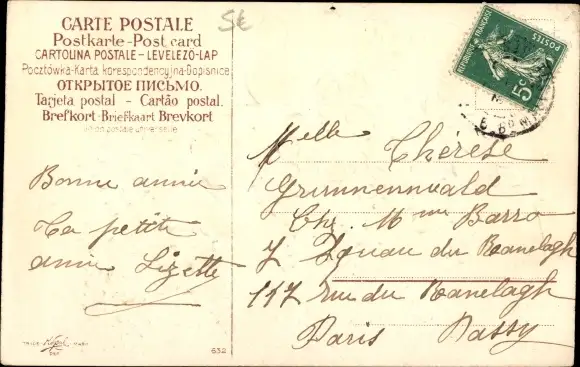 CARTE POSTALE
Postkarte - Post card
CARTOLINA POSTALE - LEVELEZÖ-LAP
Pocztówka - Karta korespondencyjna - Dopisnice
ОТКРЫТОЕ ПИСЬМО.
Tarjeta postal - Cartão postal.
Brefkort - Briefkaart Brevkort
union postale universelle
5€
RÉPUBLIQUE FRANÇAISE
POSTES
5c
Bonne année
Ta petite
amie Lizette
Melle Thérèse
Grunnenwald
Che. Mme Barro
du Ranelagh
117 rue du Ranelagh
Paris Passy
TRADE MARK
652